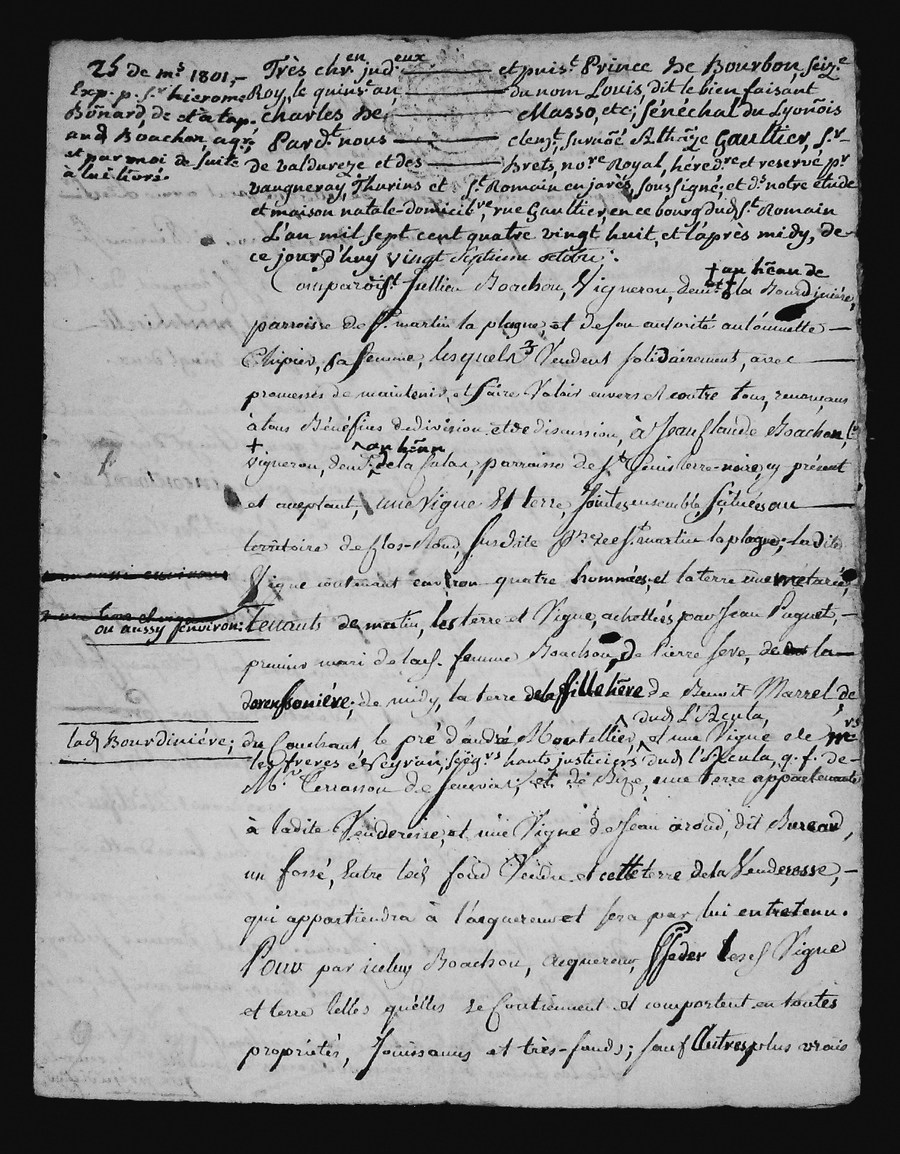 25 de ms 1801,-
Exp. p. Sr hierome
Bonard, de et à tap.
and Boachon, agr.
et par moi de suite
à lui livré.
Très chr.en jud.eux et puis.t Prince de Bourbon, seiz.e
Roy, le quins.t an, du nom Louis, dit le bien faisant
charles de Masso, etc; sénéchal du Lyoñois
Par d.t nous clem.t, surnoé Gaultier, s.r
de valdureze et des brets, no.re Royal, héréd.re et reservé p.r
vaugneray, Thurins et St. Romain en jarés, soussigné; et ds notre étude
et maison natale-domicil.re, rue Gaultier, en ce bourg dud. St. Romain
L'an mil sept cent quatre vingt huit, et l'après midy, de
ce jour d'huy vingt septieme octobre:
+ au hèau de
Comparoist Jullien Boachon, Vigneron, dem.t à la Bourdinière,
parroisse de St. martin la plagne, et de son autorité antoinnette
Chipier, sa femme, lesquels Vendent solidairement, avec
promesses de maintenir, et faire Valoir envers et contre tous, renonçans
à tous Bénéfices de division et de discussion, à Jean Claude Boachon
+ au hèau
vigneron, dem.t de la parroisse de St. Genis terre-noire, y présent
et aceptant, une Vigne Et terre, Jointes ensemble, Situées au
territoire de Clos-Rond, susdite p.sse de St. martin la plagne; ladite
Vigne contenant environ quatre hommées; et la terre une metairée,
ou aussy environ:
tenants de matin, les terre et Vigne, achettées par Jean Puguet,
premier mari de lad. femme Boachon, de Pierre seve, de la
dorensonière; de midy, la terre de la fille hère de Benoit Marrel, de
dud. L'Aculа,
lad. Bourdinière; du Couchant, le pré d'andré Montellier, et une Vigne de
les frères de Veyrain, seig.rs hauts justiciers dud. l'Acula, q. f. de
Mr. Terrasson de Senevas; et de Bize, une terre appartenante
à ladite Venderesse, et une Vigne de Jean aroud, dit Bureaud,
un fossé, Entre led. fond Vendu et cette terre de la Venderesse,
qui appartiendra à l'acquereur et sera par lui entretenu.
Pour par iceluy Boachon, acquereur, posséder lesd. Vigne
et terre telles qu'elles se Contiennent et comportent en toutes
propriétés, Jouissances et très-fonds; sauf Autres plus vrais